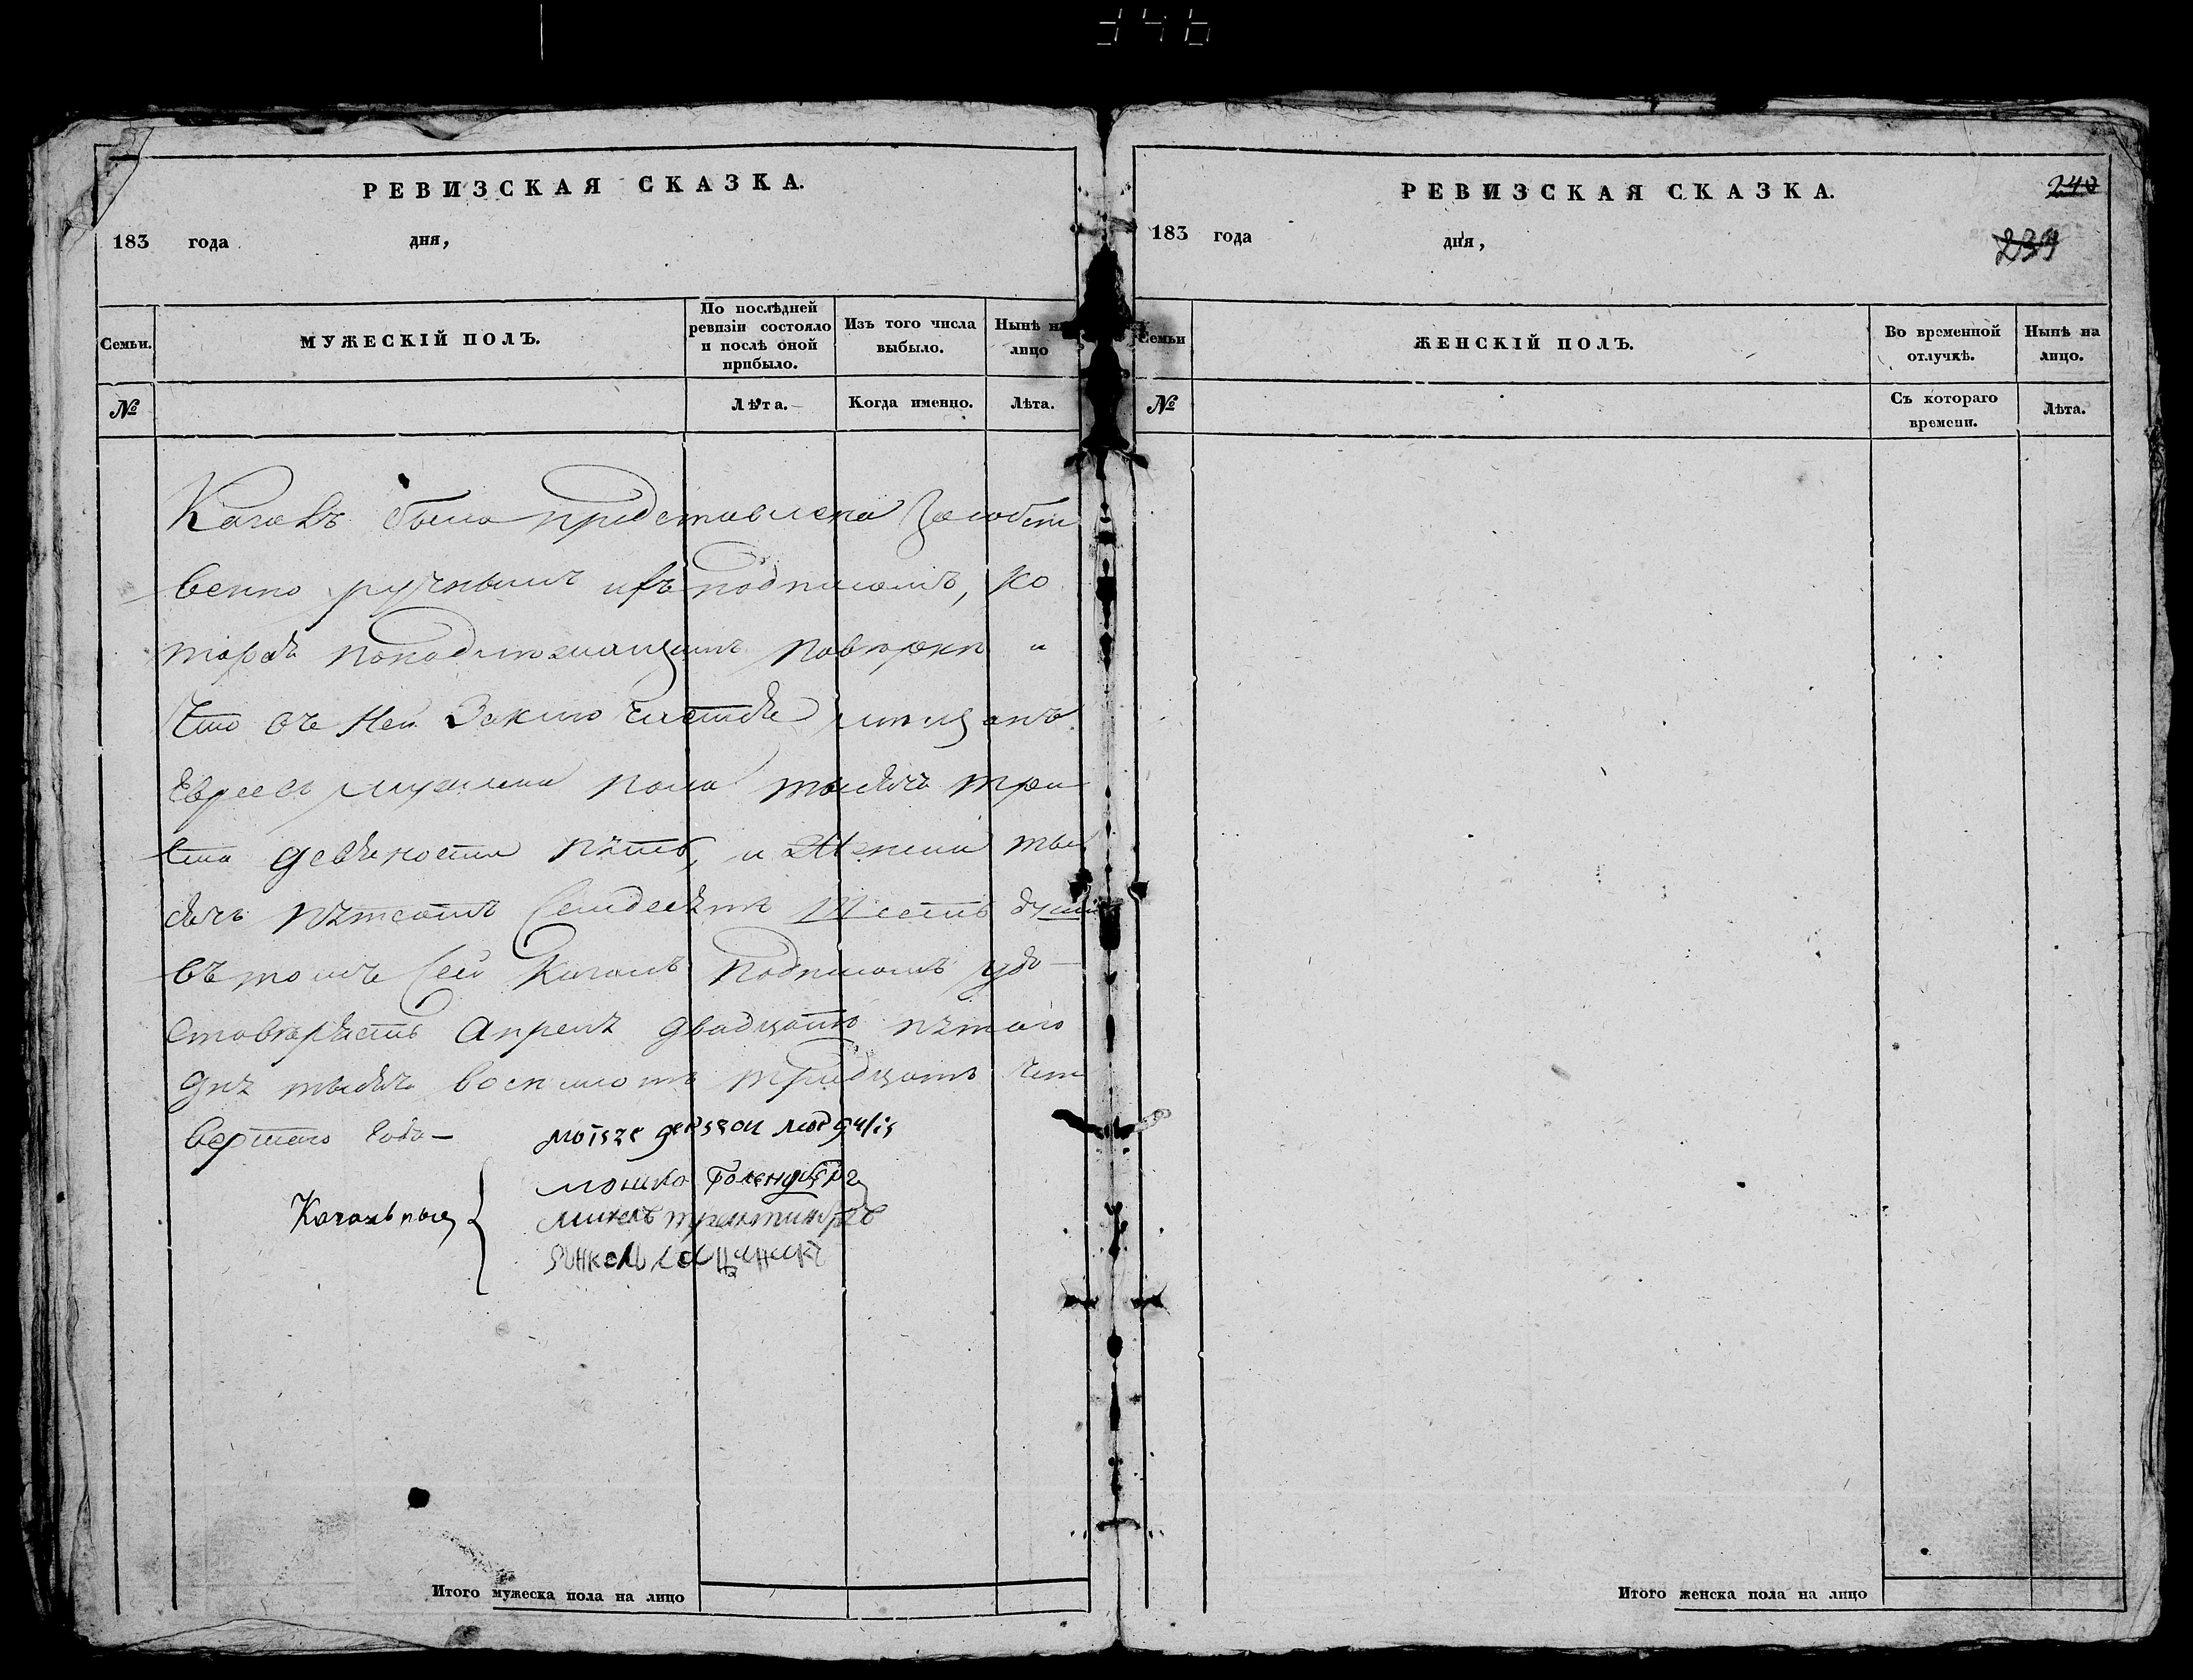 РЕВИЗСКАЯ СКАЗКА.
183 года дня,
Семьи. МУЖЕСКІЙ ПОЛЪ. По послѣдней ревизіи состояло и послѣ оной прибыло. Изъ того числа выбыло. Нынѣ на лицо
№ Лѣта. Когда именно. Лѣта.
была представлена за собст
венно ручнымъ ихъ подписомъ, ко
торая по повѣркѣ и
что въ ней заключается мѣщанъ
Евреевъ мужеска пола тысяча три
ста девяносто пять, и Женска ты
сяча пятсотъ Семдесятъ Шесть душъ
въ томъ Сей Кагалъ подписомъ удо
стовѣряетъ Апреля двадцать пятаго
дня тысяча восемсотъ тридцать чет
вертаго года—
Кагальные
мошко
Итого мужеска пола на лицо
РЕВИЗСКАЯ СКАЗКА.
240
183 года дня,
239
Семьи ЖЕНСКІЙ ПОЛЪ. Во временной отлучкѣ. Нынѣ на лицо.
№ Съ котораго времени. Лѣта.
Итого женска пола на лицо